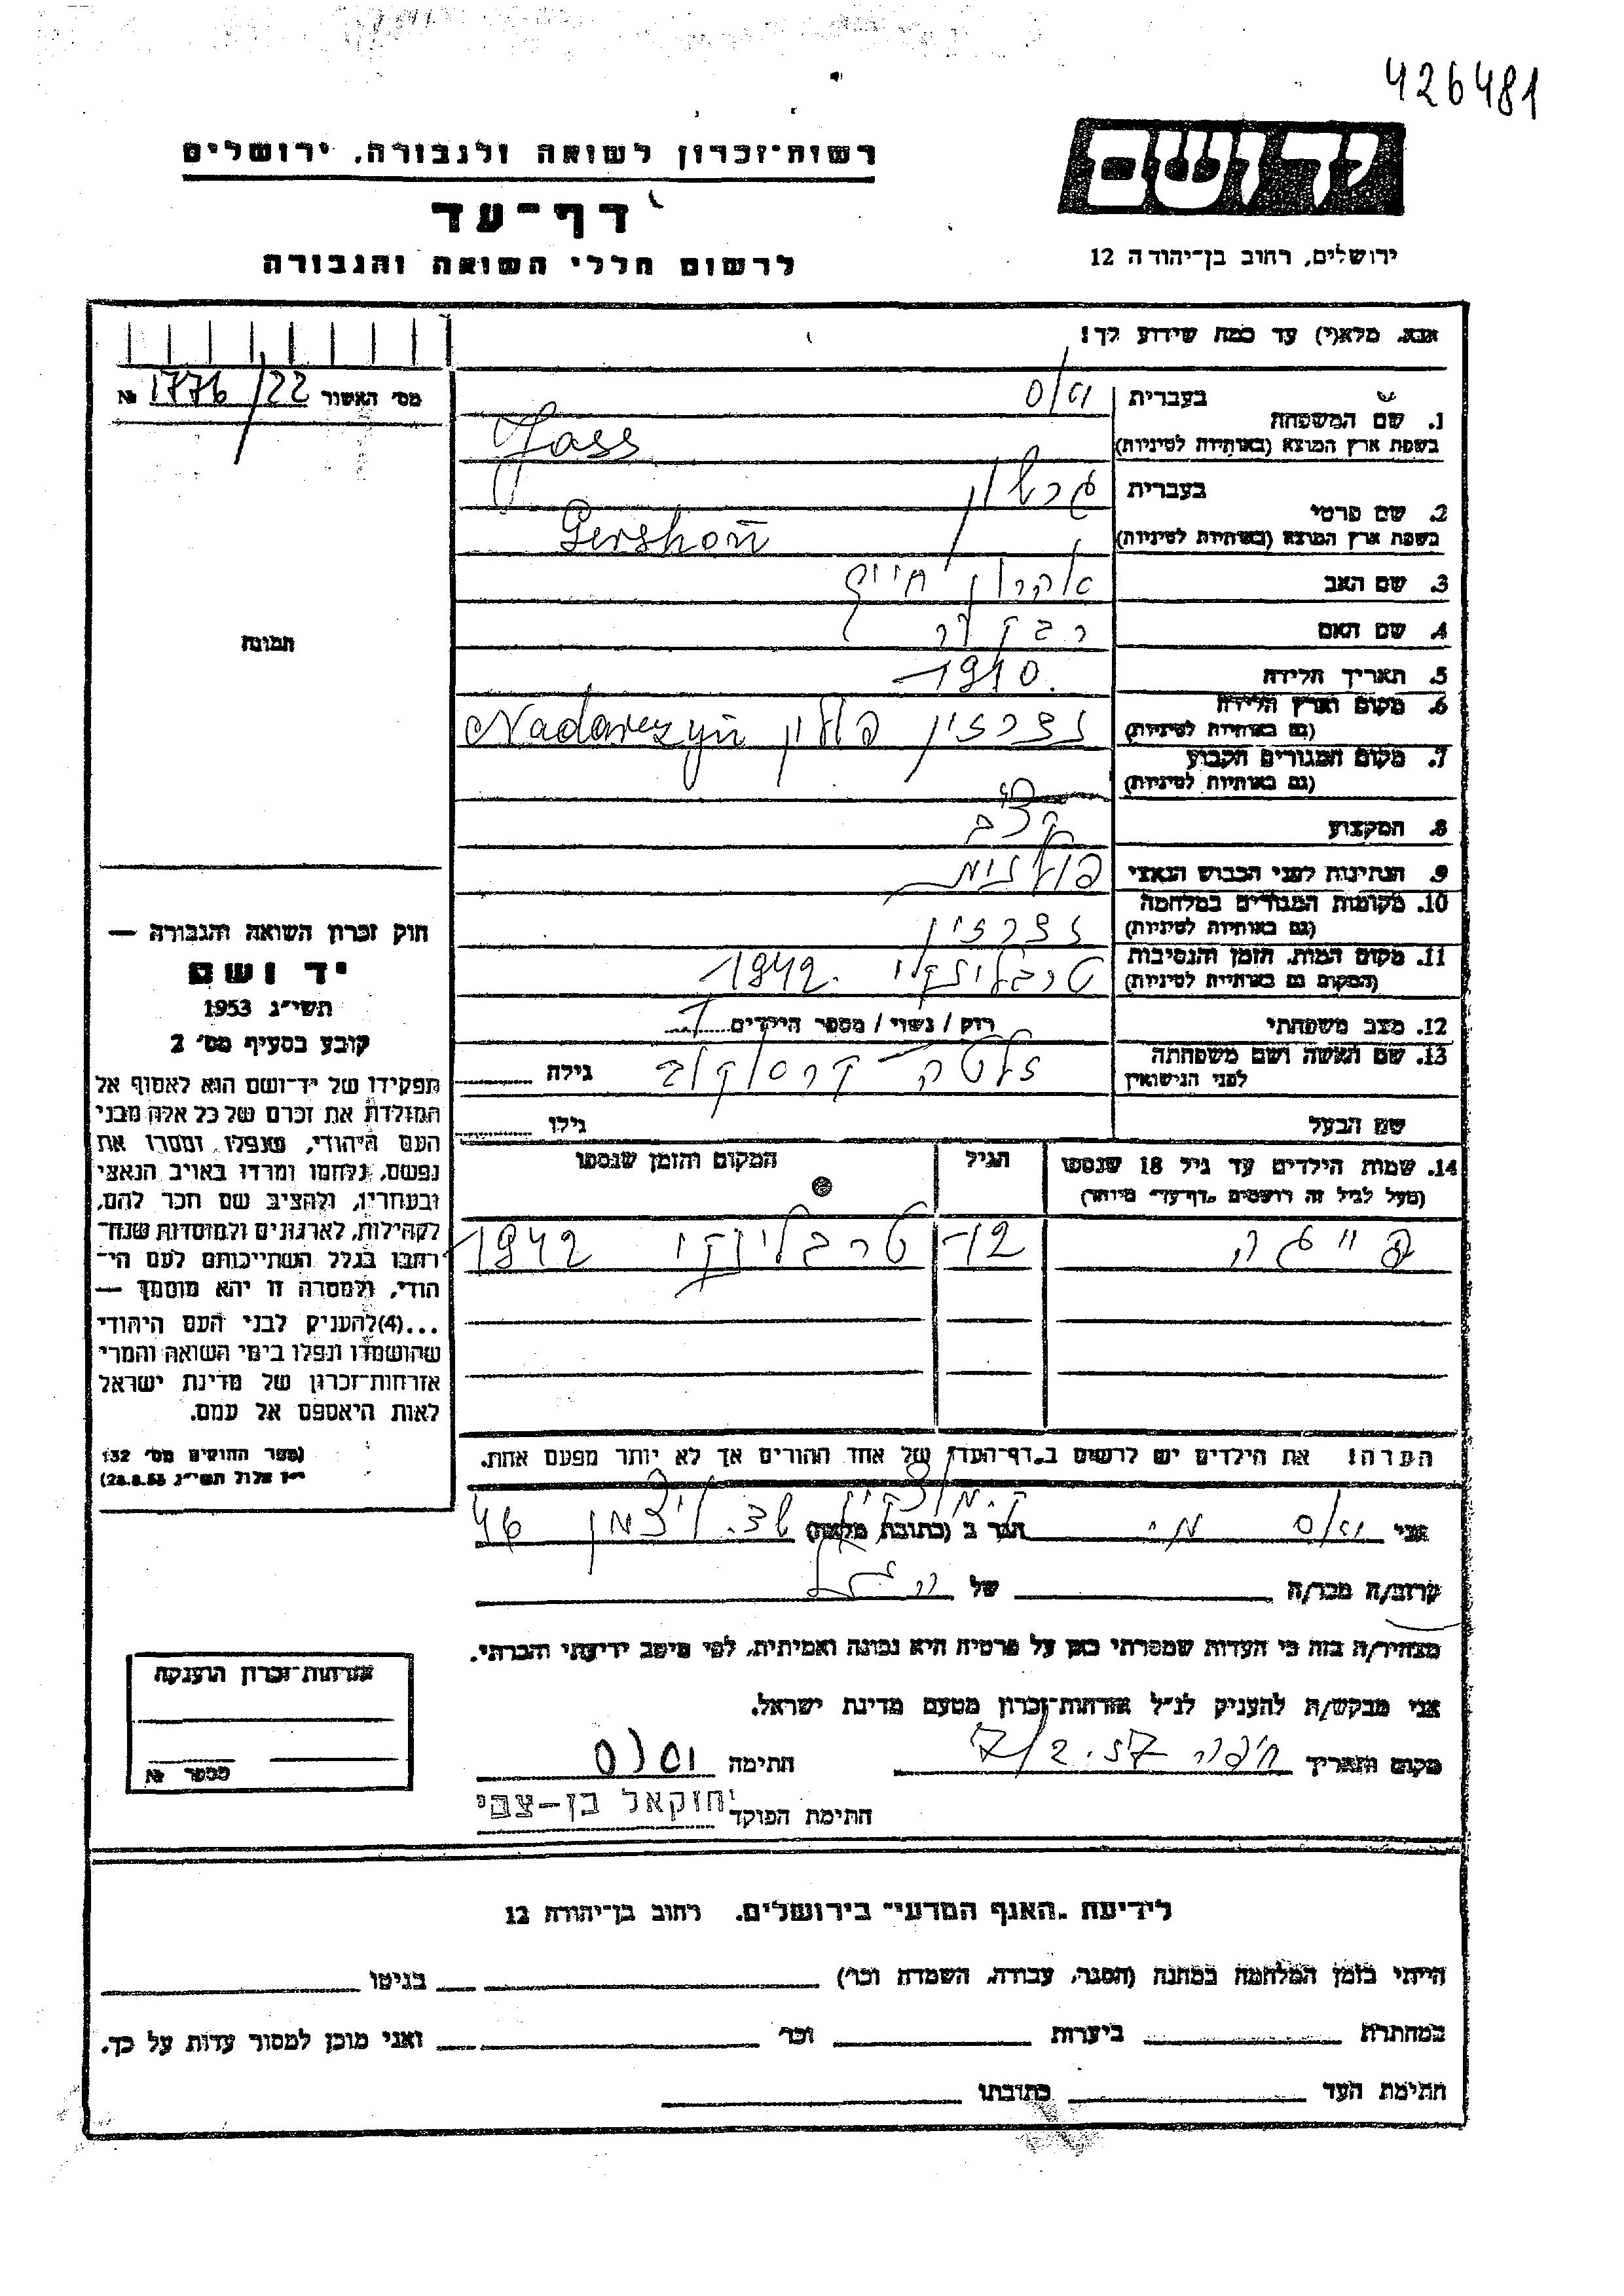 426481
יד ושם
רשות־זכרון לשואה ולגבורה, ירושלים
דף־עד
לרשום חללי השואה והגבורה
ירושלים, רחוב בן־יהודה 12
אנא, מלא(י) עד כמה שידוע לך!
מס' האשור 1776/22 №
1. שם המשפחה
בעברית
בשפת ארץ המוצא (באותיות לטיניות) Jass
2. שם פרטי
בעברית גרשון
בשפת ארץ המוצא (באותיות לטיניות) Gershon
3. שם האב אהרון חיים
4. שם האם רבקה
5. תאריך הלידה 1910
6. מקום וארץ הלידה
(גם באותיות לטיניות) נדרזין פולין Nadarezyń
7. מקום המגורים הקבוע
(גם באותיות לטיניות)
8. המקצוע קצב
9. הנתינות לפני הכבוש הנאצי פולנית
10. מקומות המגורים במלחמה
(גם באותיות לטיניות) נדרזין
11. מקום המות, הזמן והנסיבות
(המקום גם באותיות לטיניות) טרבלינקי 1942.
12. מצב משפחתי רוק / נשוי / מספר הילדים 1
13. שם האשה ושם משפחתה
לפני הנישואין זלטה קרסקוב גילה
שם הבעל גילו
14. שמות הילדים עד גיל 18 שנספו
(מעל לגיל זה רושמים "דף־עד" מיוחד)
הגיל
המקום והזמן שנספו
פייגה 12 טרבלינקי 1942
הערה: את הילדים יש לרשום ב"דף־העד" של אחד ההורים אך לא יותר מפעם אחת.
תמונה
חוק זכרון השואה והגבורה —
יד ושם
תשי״ג 1953
קובע בסעיף מס' 2
תפקידו של יד־ושם הוא לאסוף אל
המולדת את זכרם של כל אלה מבני
העם היהודי, שנפלו, ומסרו את
נפשם, נלחמו ומרדו באויב הנאצי
ובעוזריו, ולהציב שם וזכר להם,
לקהילות, לארגונים ולמוסדות שנח־
רבו בגלל השתייכותם לעם הי־
הודי, ולמטרה זו יהא מוסמך —
...(4) להעניק לבני העם היהודי
שהושמדו ונפלו בימי השואה והמרי
אזרחות־זכרון של מדינת ישראל
לאות היאספם אל עמם.
(ספר החוקים מס' 132
י״ז אלול תשי״ג 28.8.53)
אני הגר ב (כתובת מלאה) 46
קרוב/ה מכר/ה של
מצהיר/ה בזה כי העדות שמסרתי כאן על פרטיה היא נכונה ואמיתית, לפי מיטב ידיעתי והכרתי.
אני מבקש/ת להעניק לנ״ל אזרחות־זכרון מטעם מדינת ישראל.
מקום ותאריך חיפה 7/2.57 חתימה
חתימת הפוקד יחזקאל בן-צבי
אזרחות־זכרון הוענקה
מספר №
לידיעת "האגף המדעי" בירושלים, רחוב בן־יהודה 12
הייתי בזמן המלחמה במחנה (הסגר, עבודה, השמדה וכו') בגיטו
במחתרת ביערות וכו' ואני מוכן למסור עדות על כך.
חתימת העד כתובתו